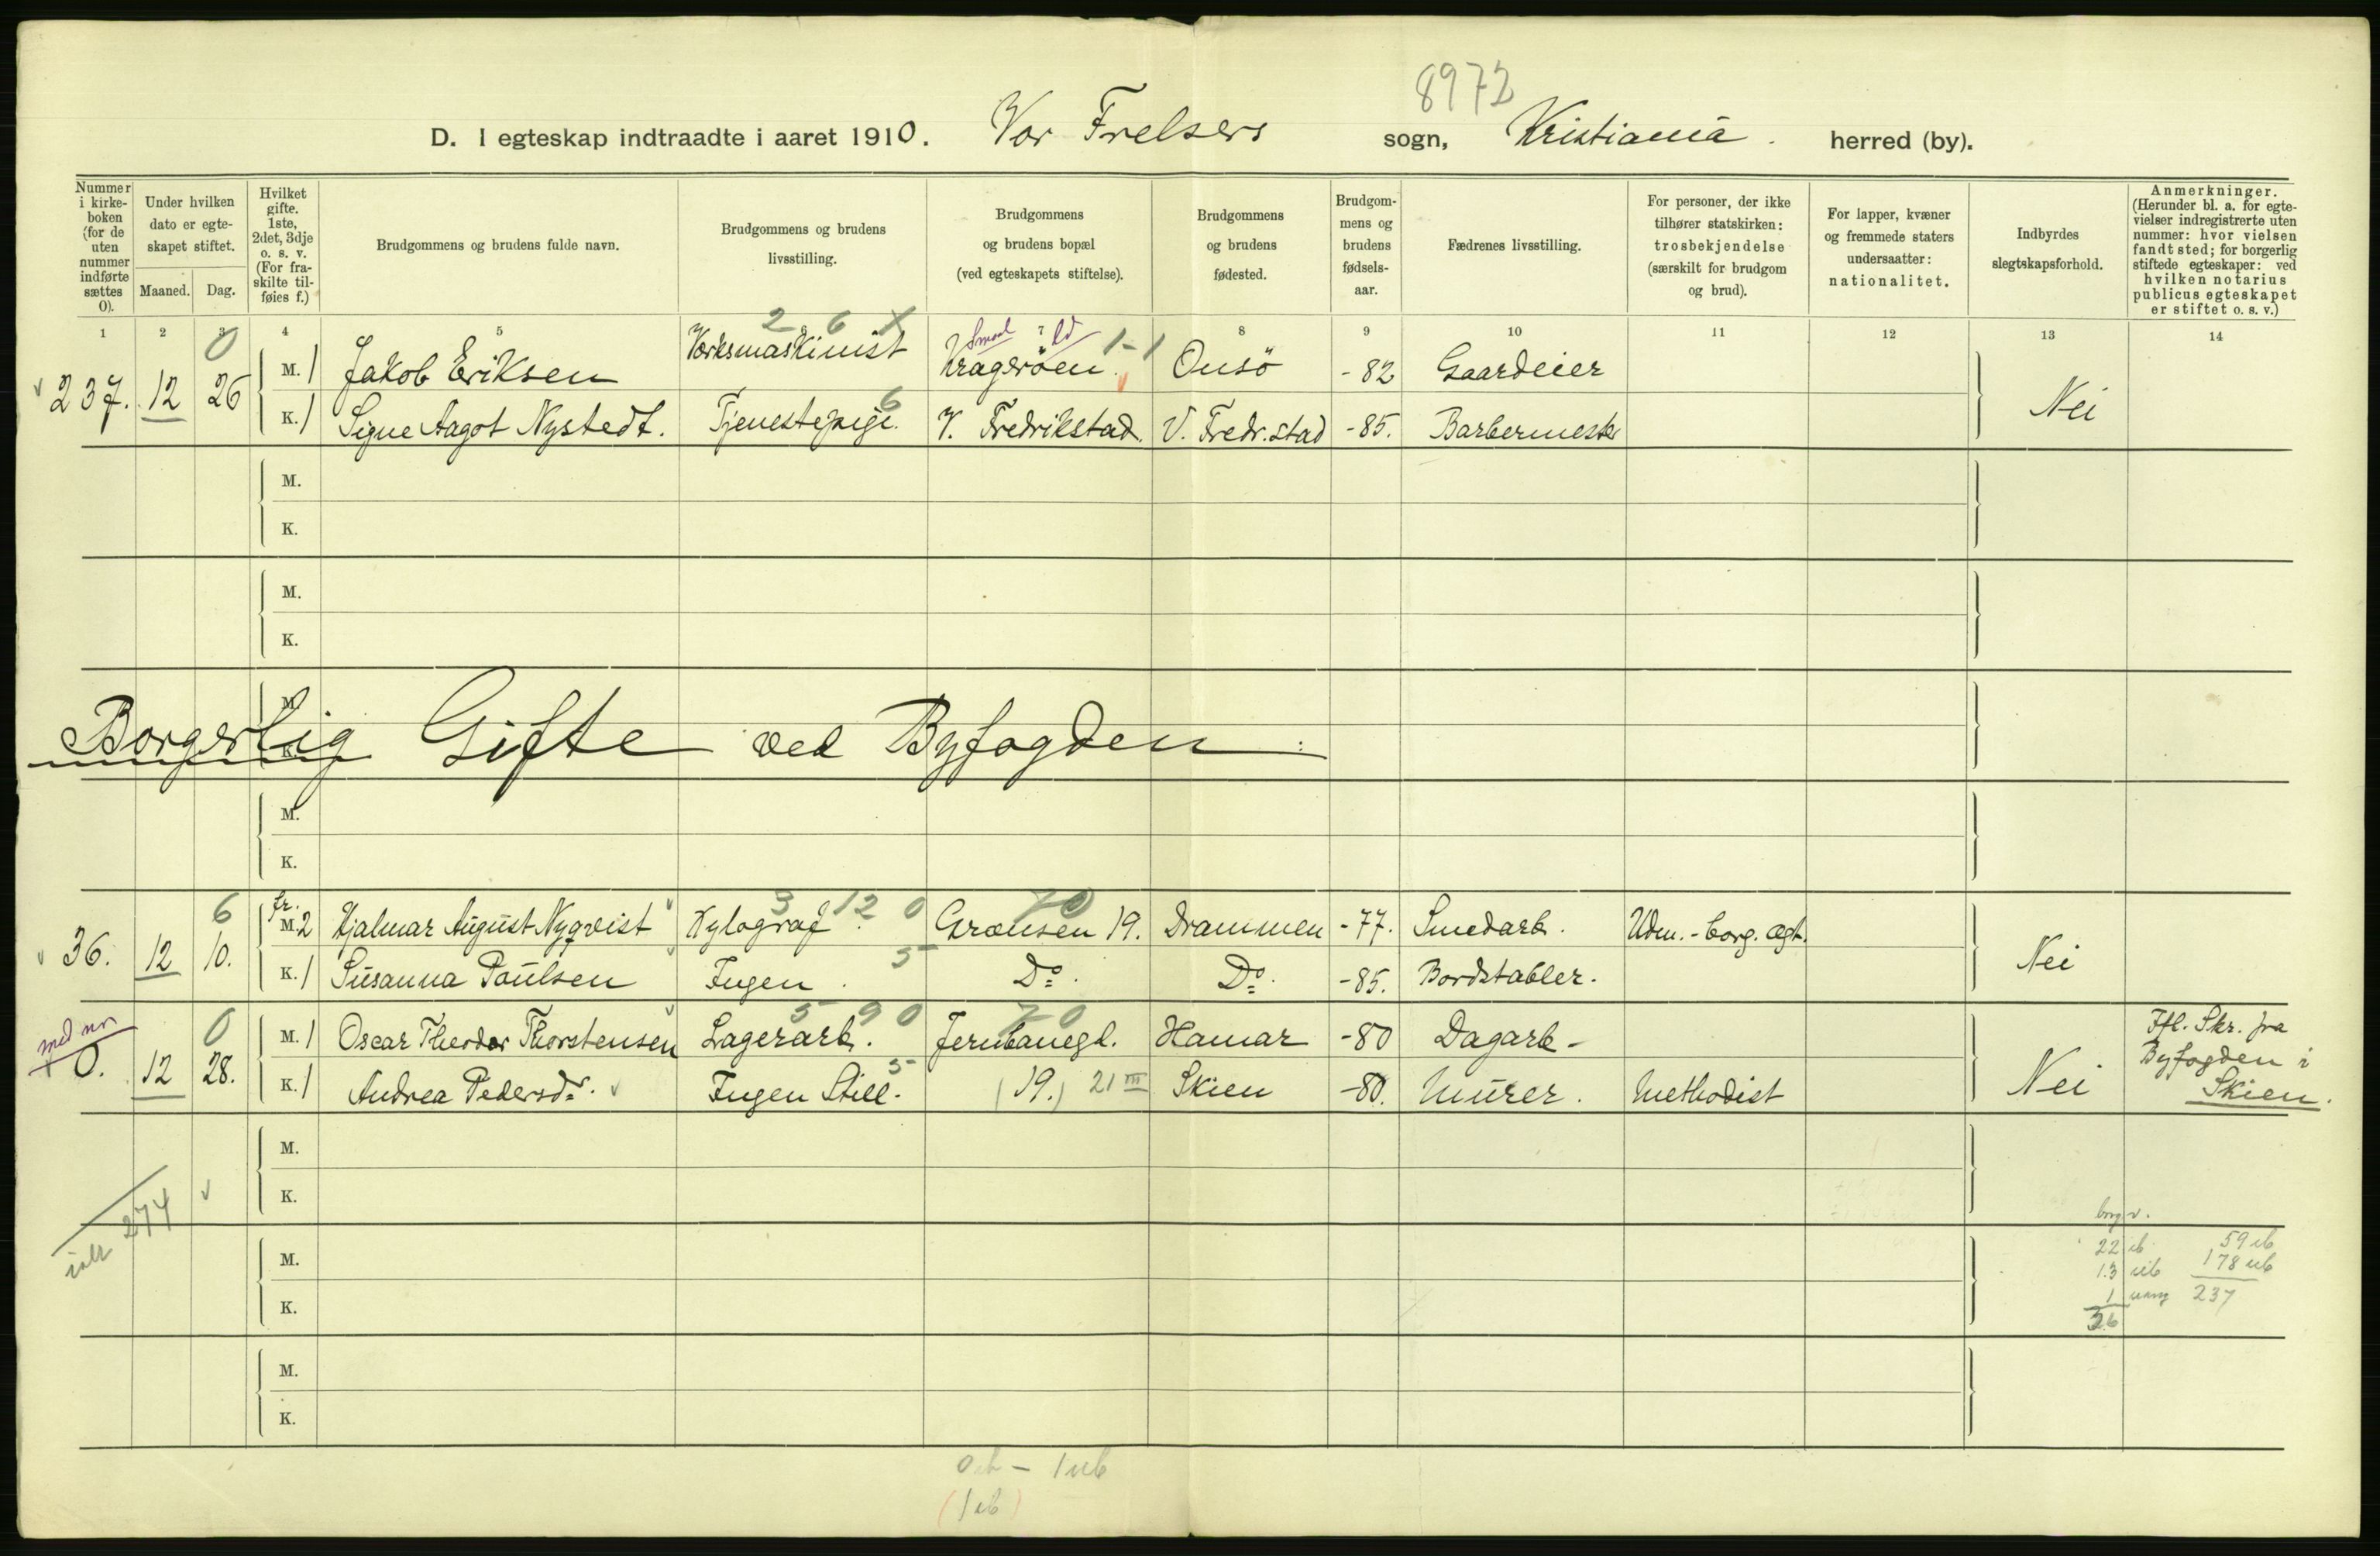 8972
D. I egteskap indtraadte i aaret 1910. Vor Frelsers sogn, Kristiania. herred (by).
Nummer i kirkeboken (for de uten nummer indførte sættes 0).
Under hvilken dato er egteskapet stiftet.
Maaned. Dag.
Hvilket gifte. 1ste, 2det, 3dje o. s. v. (For fraskilte tilføies f.)
Brudgommens og brudens fulde navn.
Brudgommens og brudens livsstilling.
Brudgommens og brudens bopæl (ved egteskapets stiftelse).
Brudgommens og brudens fødested.
Brudgommens og brudens fødselsaar.
Fædrenes livsstilling.
For personer, der ikke tilhører statskirken: trosbekjendelse (særskilt for brudgom og brud).
For lapper, kvæner og fremmede staters undersaatter: nationalitet.
Indbyrdes slegtskapsforhold.
Anmerkninger. (Herunder bl. a. for egtevielser indregistrerte uten nummer: hvor vielsen fandt sted; for borgerlig stiftede egteskaper: ved hvilken notarius publicus egteskapet er stiftet o. s. v.)
1 2 3 4 5 6 7 8 9 10 11 12 13 14
0 2 6 X 1-1
237. 12 26 M. 1 Jakob Eriksen Værksmaskinist Kragerøen. Onsö -82 Gaardeier Nei
K. 1 Signe Aagot Nystedt. Tjenestepige. 6 V. Fredrikstad. V. Fredr.stad -85. Barbermester
M.
K.
M.
K.
M.
K.
Borgerlig Gifte ved Byfogden:
M.
K.
6 fr. 3 12 0 70
36. 12 10. M. 2 Hjalmar August Nyqvist Xylograf. Grænsen 19. Drammen -77. Smedarb. Udm. - borg. ægt. Nei
K. 1 Susanna Paulsen Ingen. 5 Do. Do. -85. Bordstabler.
med nr. 0 5 9 0 70
0. 12 28. M. 1 Oscar Theodor Thorstensen Lagerarb. Jernbanegd. Hamar -80 Dagarb - Nei Ifl. Skr. fra Byfogden i Skien.
K. 1 Andrea Pedersdr. Ingen Still. 5 (19.) 21 III Skien -80. Murer. Methodist
M.
K.
274
M.
K.
borg v.
22 ib 59 ib
13 uib 178 ub
1 237
36
M.
K.
0 ib - 1 ub
(1 ib)